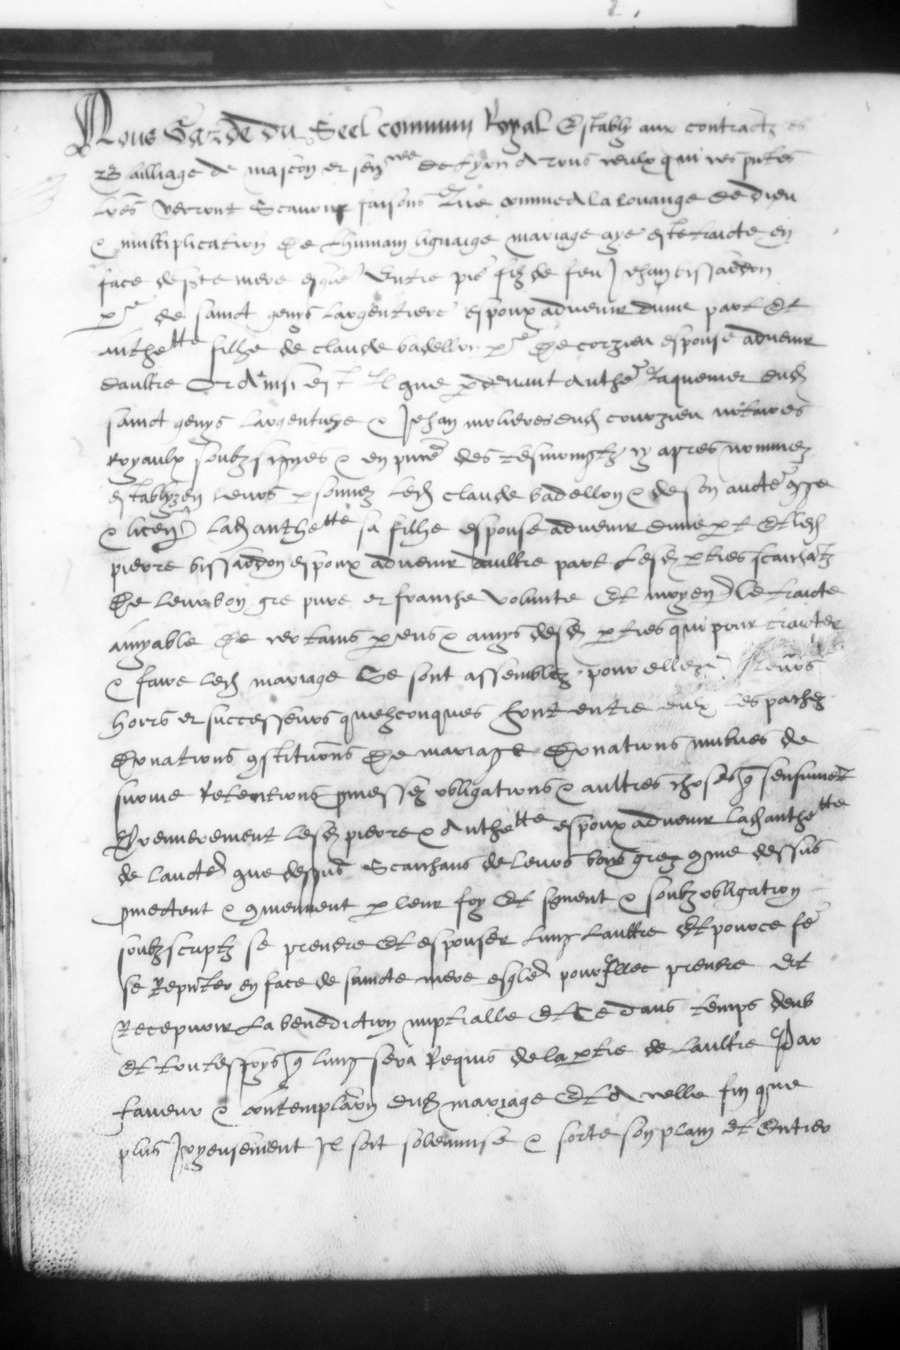 Nous Garde du Seel commun Royal Estably aux contractz es
Bailliage de mascon et senree de Lyon A tous ceulx qui ces pntes
Lres verront Scavoir faisons Que comme A la louange de dieu
& multiplication de Lhumain lignaige mariage aye este traicte en
face de ste mere esglie Entre pre filz de feu Jehan bissardon
pr de sainct genys Largentiere espoux advenir dune part Et
Anthette fille de claude badellon pr de corzieu espouse advenir
daultre Or Ainsi est Il que p devant Anthe Jaquemer dud
sainct genys Largentiere & Jehan molieres dud courzieu notaires
Royaulx soubzsignes & en pnce des tesmoingtz cy apres nommez
establyz en leurs psonnes led claude badellon & de son aucte
& licence lad anthette sa fille espouse advenir dune pt Et led
pierre bissardon espoux advenir daultre part Lesd pties scaichatz
De leur bon gre pure et franche volunte Et moyen le traicte
amyable De certains parens & amys desd pties qui pour traicter
& faire led mariage Se sont assemblez pour elles leurs
hoirs et successeurs quelzconques Font entre eulx les pachez
Donations constitutions De mariage Donations mutues de
survie Retentions pmesses obligations & aultres choses q sensuivent
Premierement lesd pierre & Anthette espoux advenir lad anthette
de laucte que dessus Scaichans de leurs bons grez comme dessus
pmectent & conviennent p leur foy Et serment & soubz obligation
soubzscriptz se prendre Et espouser lung Laultre Et pour ce fe
se Repnter en face de saincte mere esglie pour Illec prendre Et
Recepvoir La benediction nuptialle Et Ce dans temps deub
Et toutesfoys q lung sera Requis de la ptie de Laultre Par
faveur & contemplaon dud mariage Et A celle fin que
plus Joyeusement Il soit solemnise & sorte son plain Et Entier